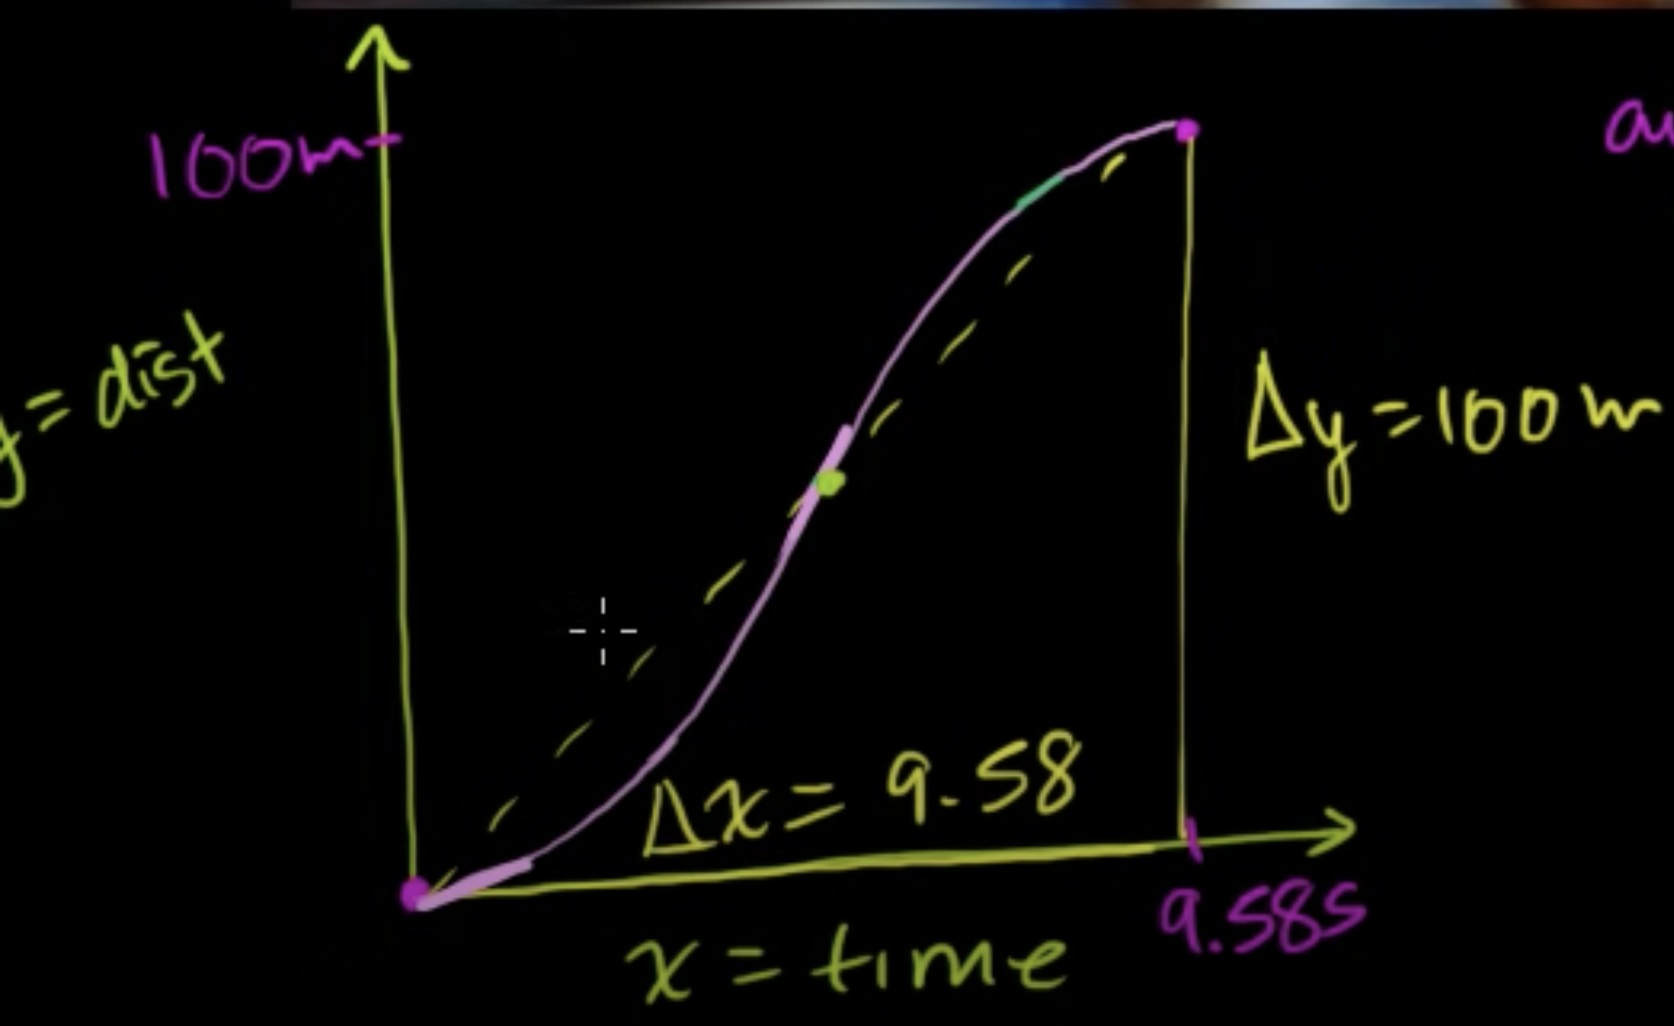 100m
y = dist
Δy = 100 m
Δx = 9.58
9.58s
x = time